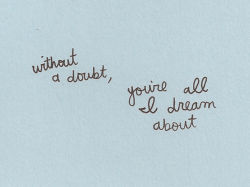 without
a doubt,
you're all
I dream
about